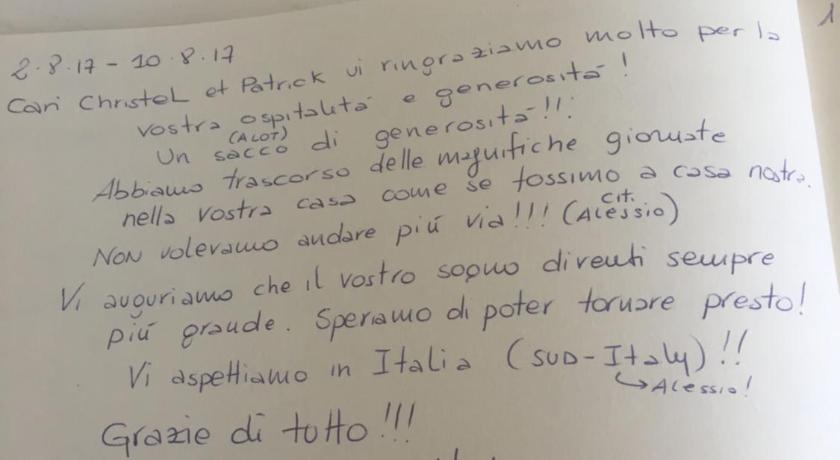 1
2.8.17 - 10.8.17
Cari Christel et Patrick vi ringraziamo molto per la
vostra ospitalità e generosità!
(ALOT)
Un sacco di generosità!!!
Abbiamo trascorso delle magnifiche giornate
nella vostra casa come se fossimo a casa nostra.
cit.
Non volevamo andare più via!!! (Alessio)
Vi auguriamo che il vostro sogno diventi sempre
più grande. Speriamo di poter tornare presto!
Vi aspettiamo in Italia (SUD-Italy)!!
↳ Alessio!
Grazie di tutto!!!